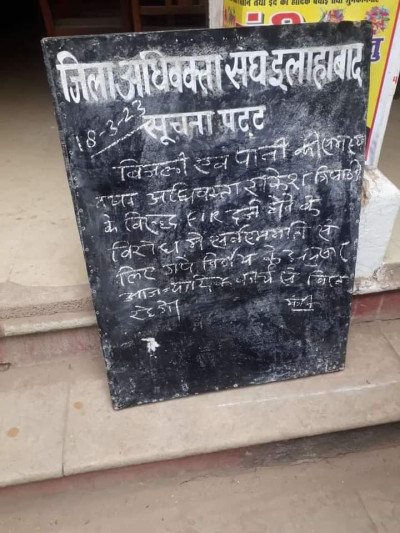 जिला अधिवक्ता संघ इलाहाबाद
18-3-23
सूचना पटट
बिजली एवं पानी की समस्या
तथा अधिवक्ता राकेश त्रिपाठी
के विरुद्ध FIR दर्ज होने के
विरोध में सर्वसम्मति से
लिए गये निर्णय के अनुसार
आज न्यायिक कार्य से विरत
रहेंगे।
मंत्री